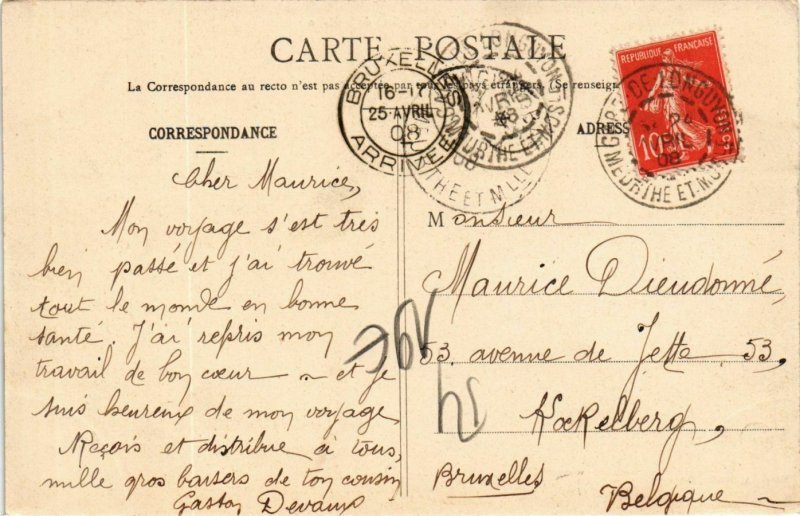 CARTE POSTALE
La Correspondance au recto n'est pas acceptée par tous les pays étrangers. (Se renseign
CORRESPONDANCE
ADRESS
BRUXELLES
16-17
25 AVRIL
08
ARRIVÉE
GARE DE LONGUYON
24
08
MEURTHE ET M
REPUBLIQUE FRANÇAISE
10
Cher Maurice,
Mon voyage s'est très
bien passé et j'ai trouvé
tout le monde en bonne
santé. J'ai repris mon
travail de bon cœur - et je
suis heureux de mon voyage
Reçois et distribue à tous,
mille gros baisers de ton cousin
Gaston Devaux
Monsieur
Maurice Dieudonné,
53. avenue de Jette. 53,
Kœkelberg,
Bruxelles
Belgique -